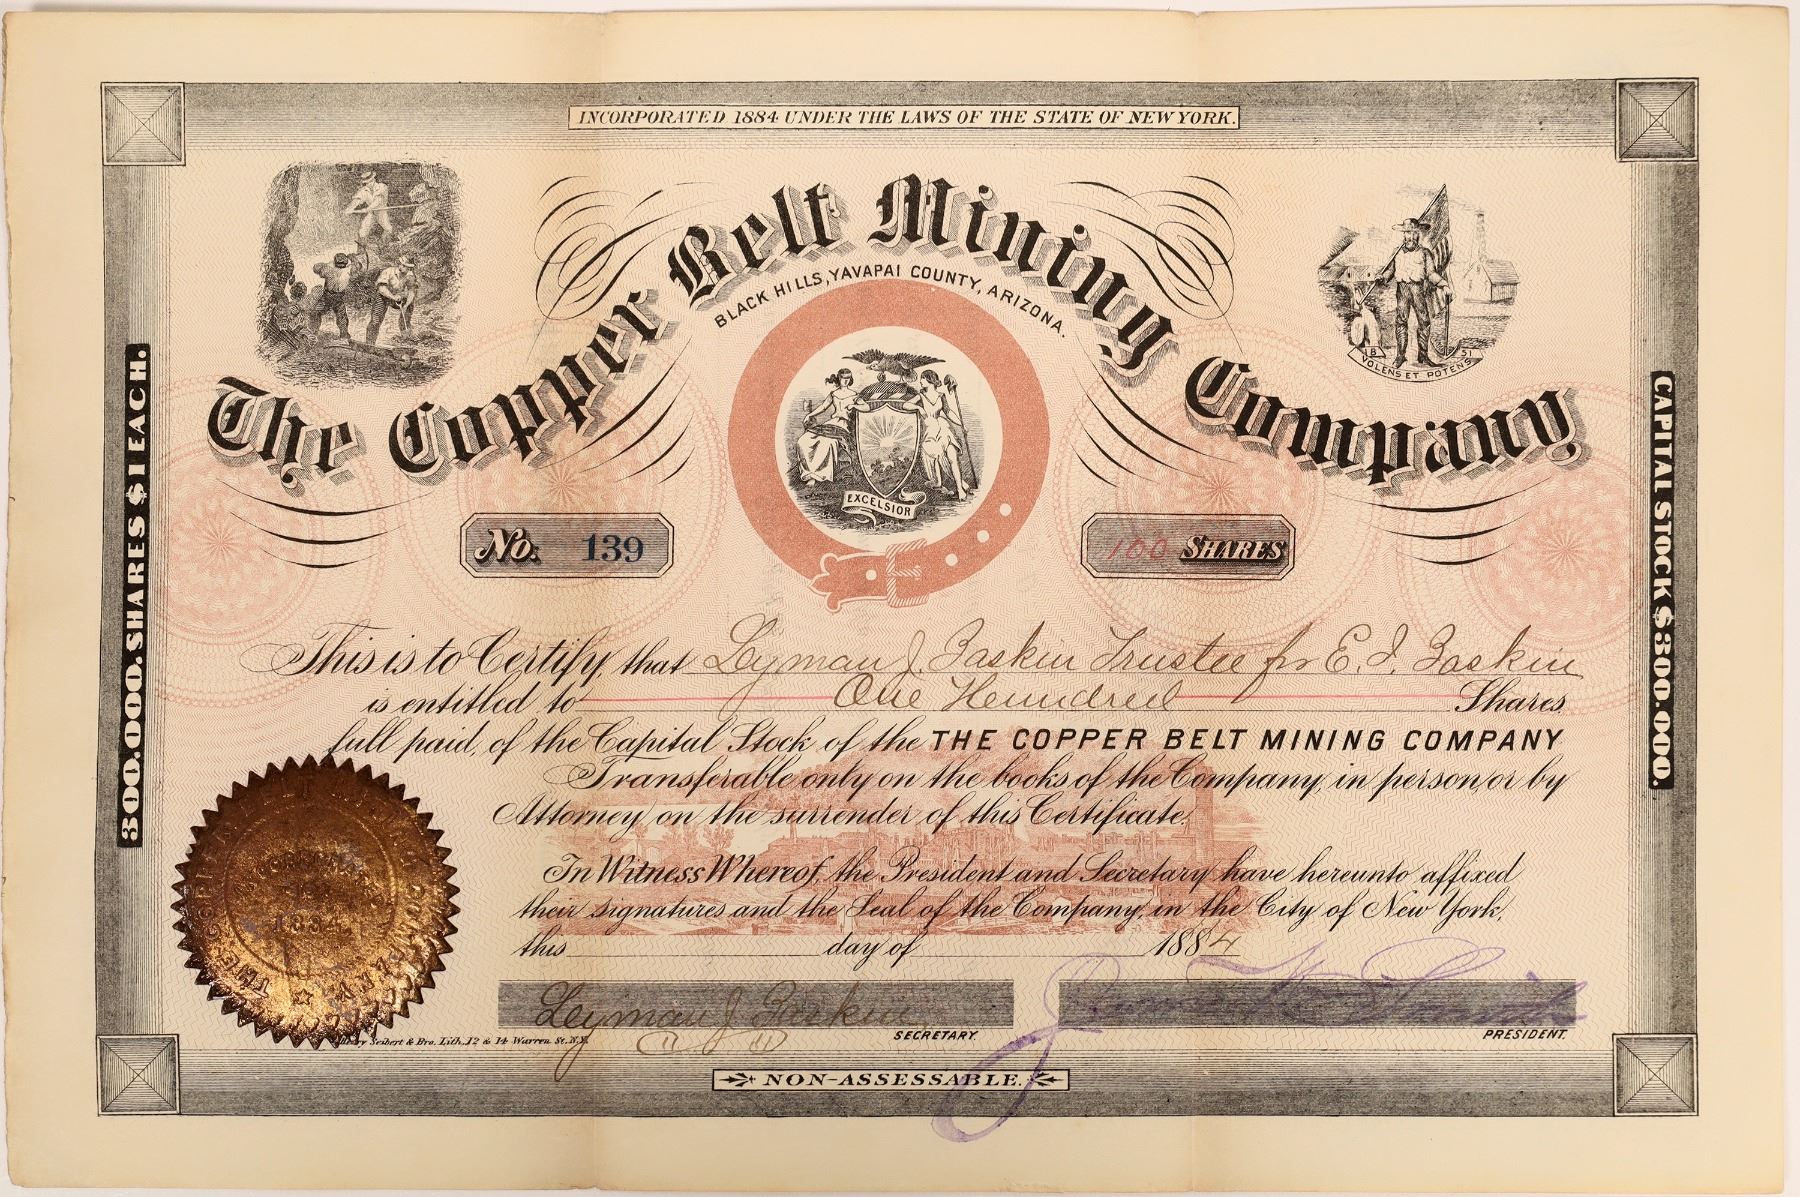 INCORPORATED 1884 UNDER THE LAWS OF THE STATE OF NEW YORK.
The Copper Belt Mining Company
BLACK HILLS, YAVAPAI COUNTY, ARIZONA.
EXCELSIOR
18 51
VOLENS ET POTENS
300.000. SHARES $1 EACH.
CAPITAL STOCK $300.000.
No. 139
100 SHARES
This is to Certify, that Leyman J. Gaskin Trustee for E. J. Gaskin
is entitled to One Hundred Shares
full paid, of the Capital Stock of the THE COPPER BELT MINING COMPANY
Transferable only on the books of the Company, in person, or by
Attorney on the surrender of this Certificate.
In Witness Whereof, the President and Secretary have hereunto affixed
their signatures and the Seal of the Company, in the City of New York,
this day of 1884
1884
Leyman J. Gaskin
SECRETARY.
PRESIDENT.
Henry Seibert & Bro. Lith. 12 & 14 Warren St. N.Y.
NON-ASSESSABLE.